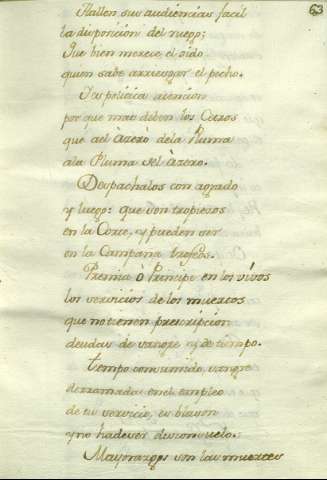 63
Hallen sus audiencias facil
la disposicion del ruego;
Que bien merece el oido
quien sabe arriesgar el pecho.
Da politica atencion
por que mas deben los Cetros
que ael àzero dela Pluma
ala Pluma del Azero.
Despachalos con agrado
y luego: que son tropiezos
en la Corte, y pueden ser
en la Campaña trofeos.
Premia ò Principe en los vivos
los servicios de los muertos
que no tienen prescripcion
deudas de sangre y de tiempo.
tiempo consumido, sangre
derramada en el empleo
de tu servicio, es blason
y no ha de ser desconsuelo.
Mayorazgos son las muertes